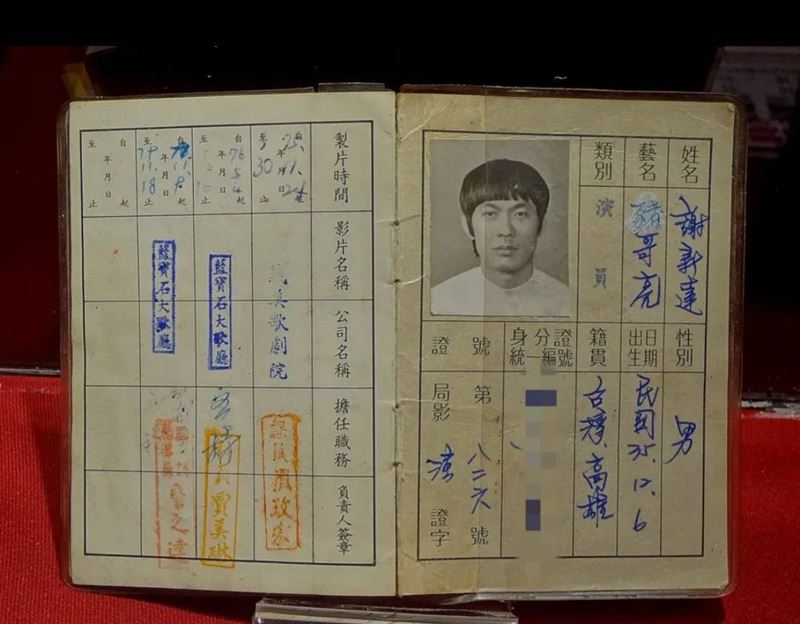 姓名 謝新達
性別 男
藝名 豬哥亮
出生日期 民國35.12.6
類別 演員
籍貫 台灣高雄
身分證統編號
證號
局影演證字
第八二六號
製片時間
影片名稱
公司名稱
擔任職務
負責人簽章
自 年 月 日起
至 年 月 日止
歌劇院
自76年5月4日起
至 年 月 日止
藍寶石大歌廳
賈美琳
自 年 月 日起
至 年 月 日止
藍寶石大歌廳
自 年 月 日起
至 年 月 日止